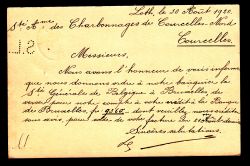 Leth, le 30 Août 1920.
Sté Ame des Charbonnages de Courcelles-Nord
Courcelles.
Messieurs,
Nous avons l'honneur de vous informer
que nous donnons ordre à notre banquier la
Sté Générale de Belgique à Bruxelles, de
verser pour notre compte à votre crédit à la Banque
de Bruxelles, fr. dont veuillez nous créditer
sous avis, pour solde de votre facture
Sincères salutations.